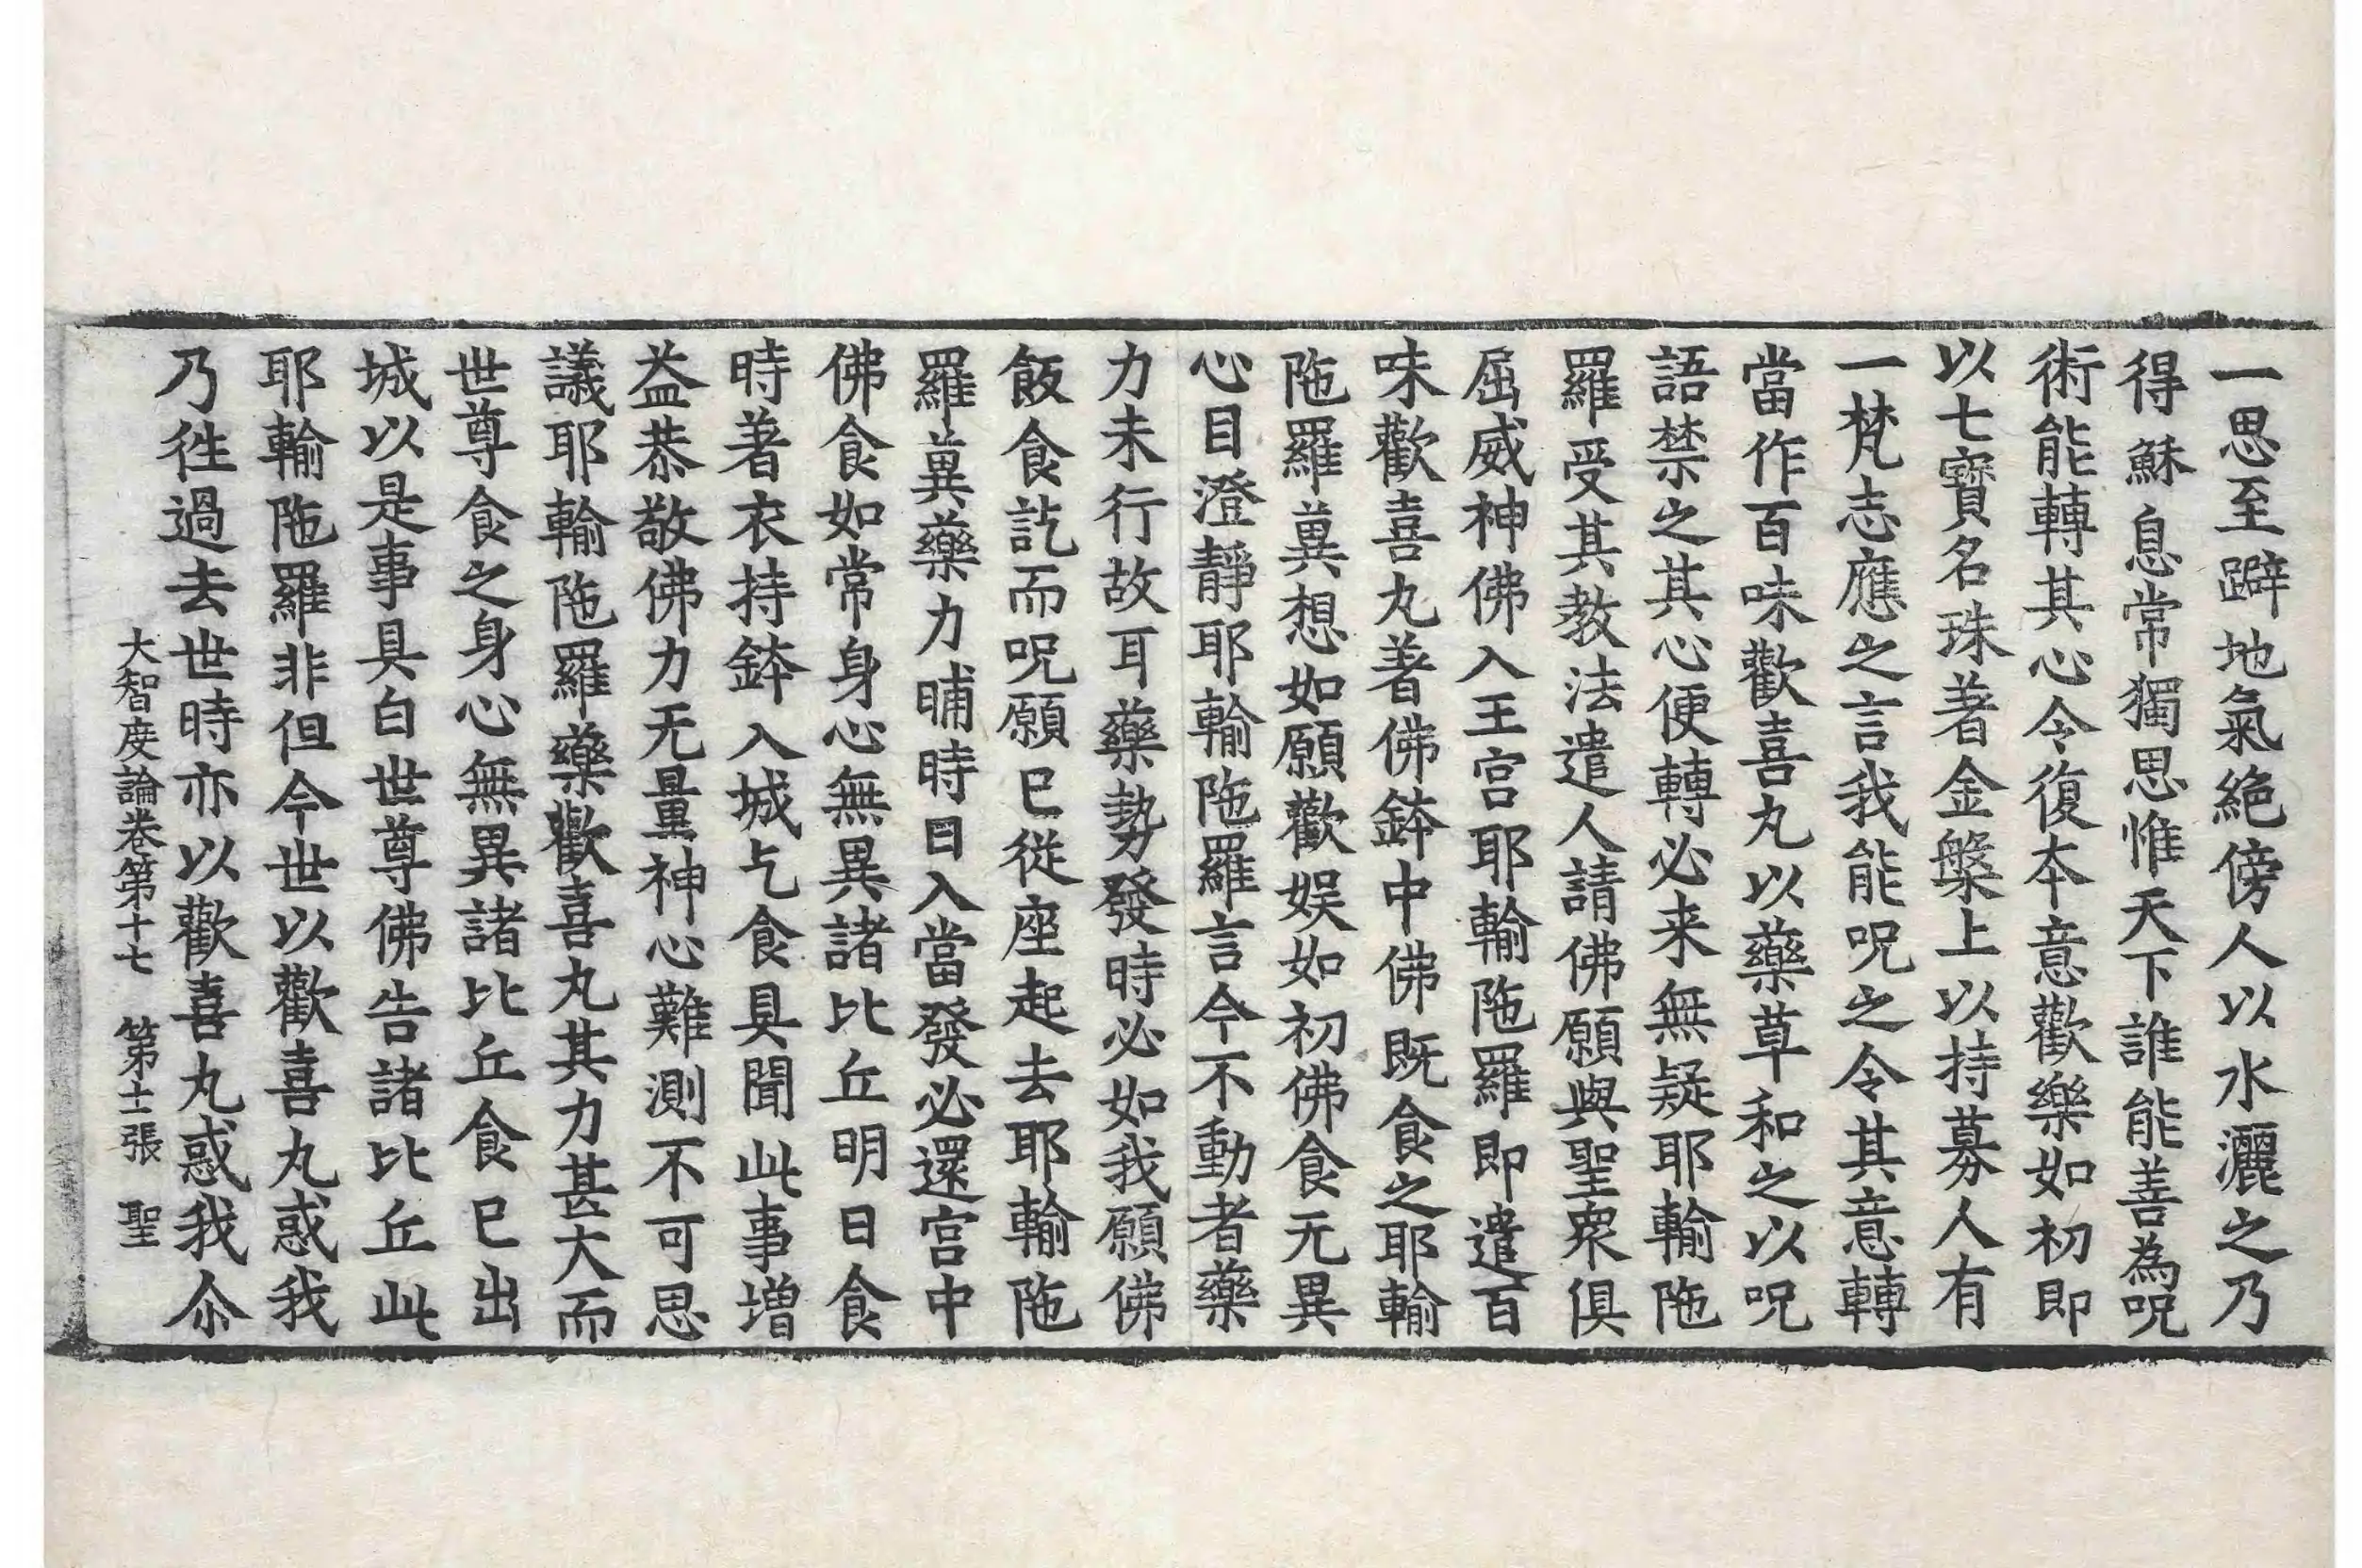 一思至躃地氣絶傍人以水灑之乃
得穌息常獨思惟天下誰能善為呪
術能轉其心令復本意歡樂如初即
以七寶名珠著金槃上以持募人有
一梵志應之言我能呪之令其意轉
當作百味歡喜丸以藥草和之以呪
語禁之其心便轉必来無疑耶輸陁
羅受其教法遣人請佛願與聖衆俱
屈威神佛入王宮耶輸陁羅即遣百
味歡喜丸著佛鉢中佛既食之耶輸
陁羅兾想如願歡娱如初佛食无異
心目澄靜耶輸陁羅言今不動者藥
力未行故耳藥勢發時必如我願佛
飯食訖而呪願已從座起去耶輸陁
羅兾藥力晡時日入當發必還宮中
佛食如常身心無異諸比丘明日食
時著衣持鉢入城乞食具聞此事增
益恭敬佛力无量神心難測不可思
議耶輸陁羅藥歡喜丸其力甚大而
世尊食之身心無異諸比丘食已出
城以是事具白世尊佛告諸比丘此
耶輸陁羅非但今世以歡喜丸惑我
乃徃過去世時亦以歡喜丸惑我尒
大智度論卷第十七　第十二張　聖